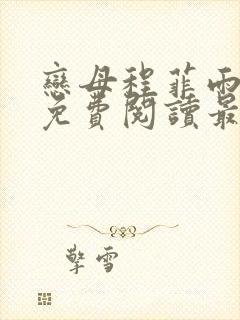 戀母程菲雨
免費閱讀最
擎雪